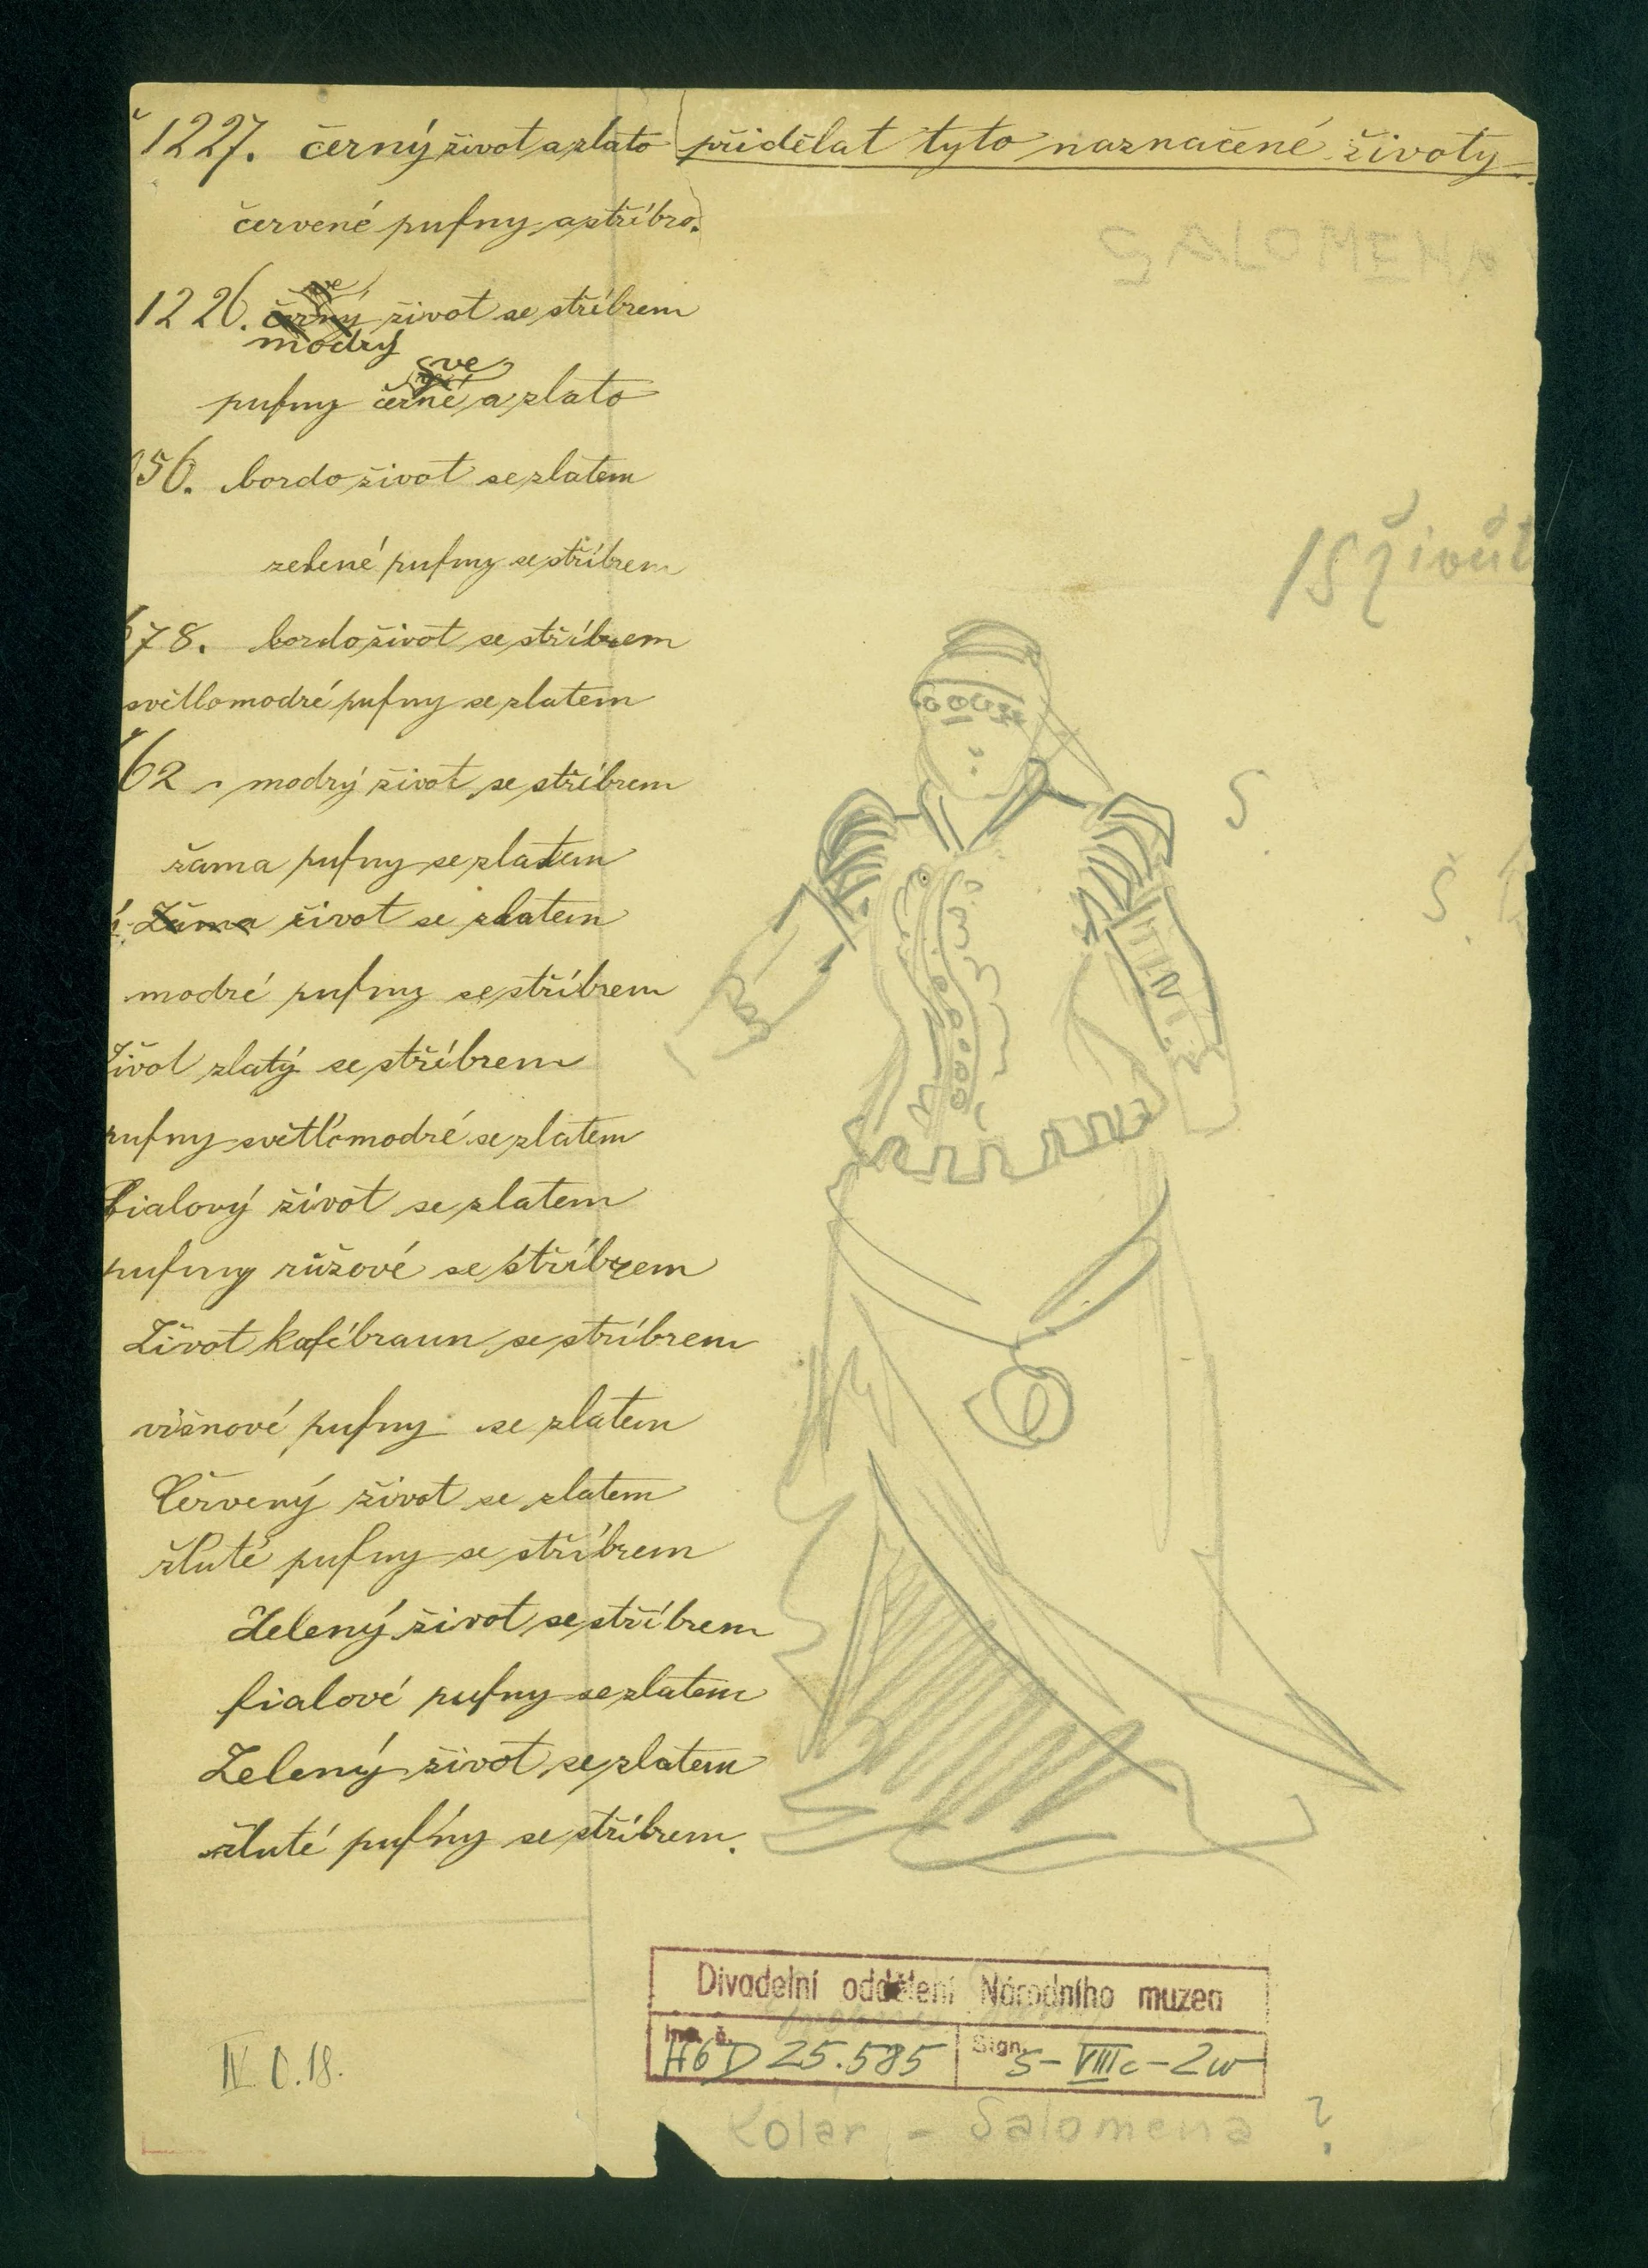 č 1227. černý život a zlato přidělat tyto naznačené životy
červené pufny a stříbro.
SALOMENA
1226. černý život se stříbrem
modrý
pufny černé a zlato
56. bordo život se zlatem
15 životů
zelené pufny se stříbrem
78. bordo život se stříbrem
světlomodré pufny se zlatem
62 modrý život se stříbrem
S
žama pufny se zlatem
Š
Žama život se zlatem
modré pufny se stříbrem
život zlatý se stříbrem
pufny světlomodré se zlatem
fialový život se zlatem
pufny růžové se stříbrem
Život kafébraun se stříbrem
višnové pufny se zlatem
Červený život se zlatem
žluté pufny se stříbrem
Zelený život se stříbrem
fialové pufny se zlatem
Zelený život se zlatem
žluté pufny se stříbrem.
Divadelní oddělení Národního muzea
Inv. č. H6D 25.585 Sign. S-VIIIc-2w
IV C.18.
Kolar - Salomena ?